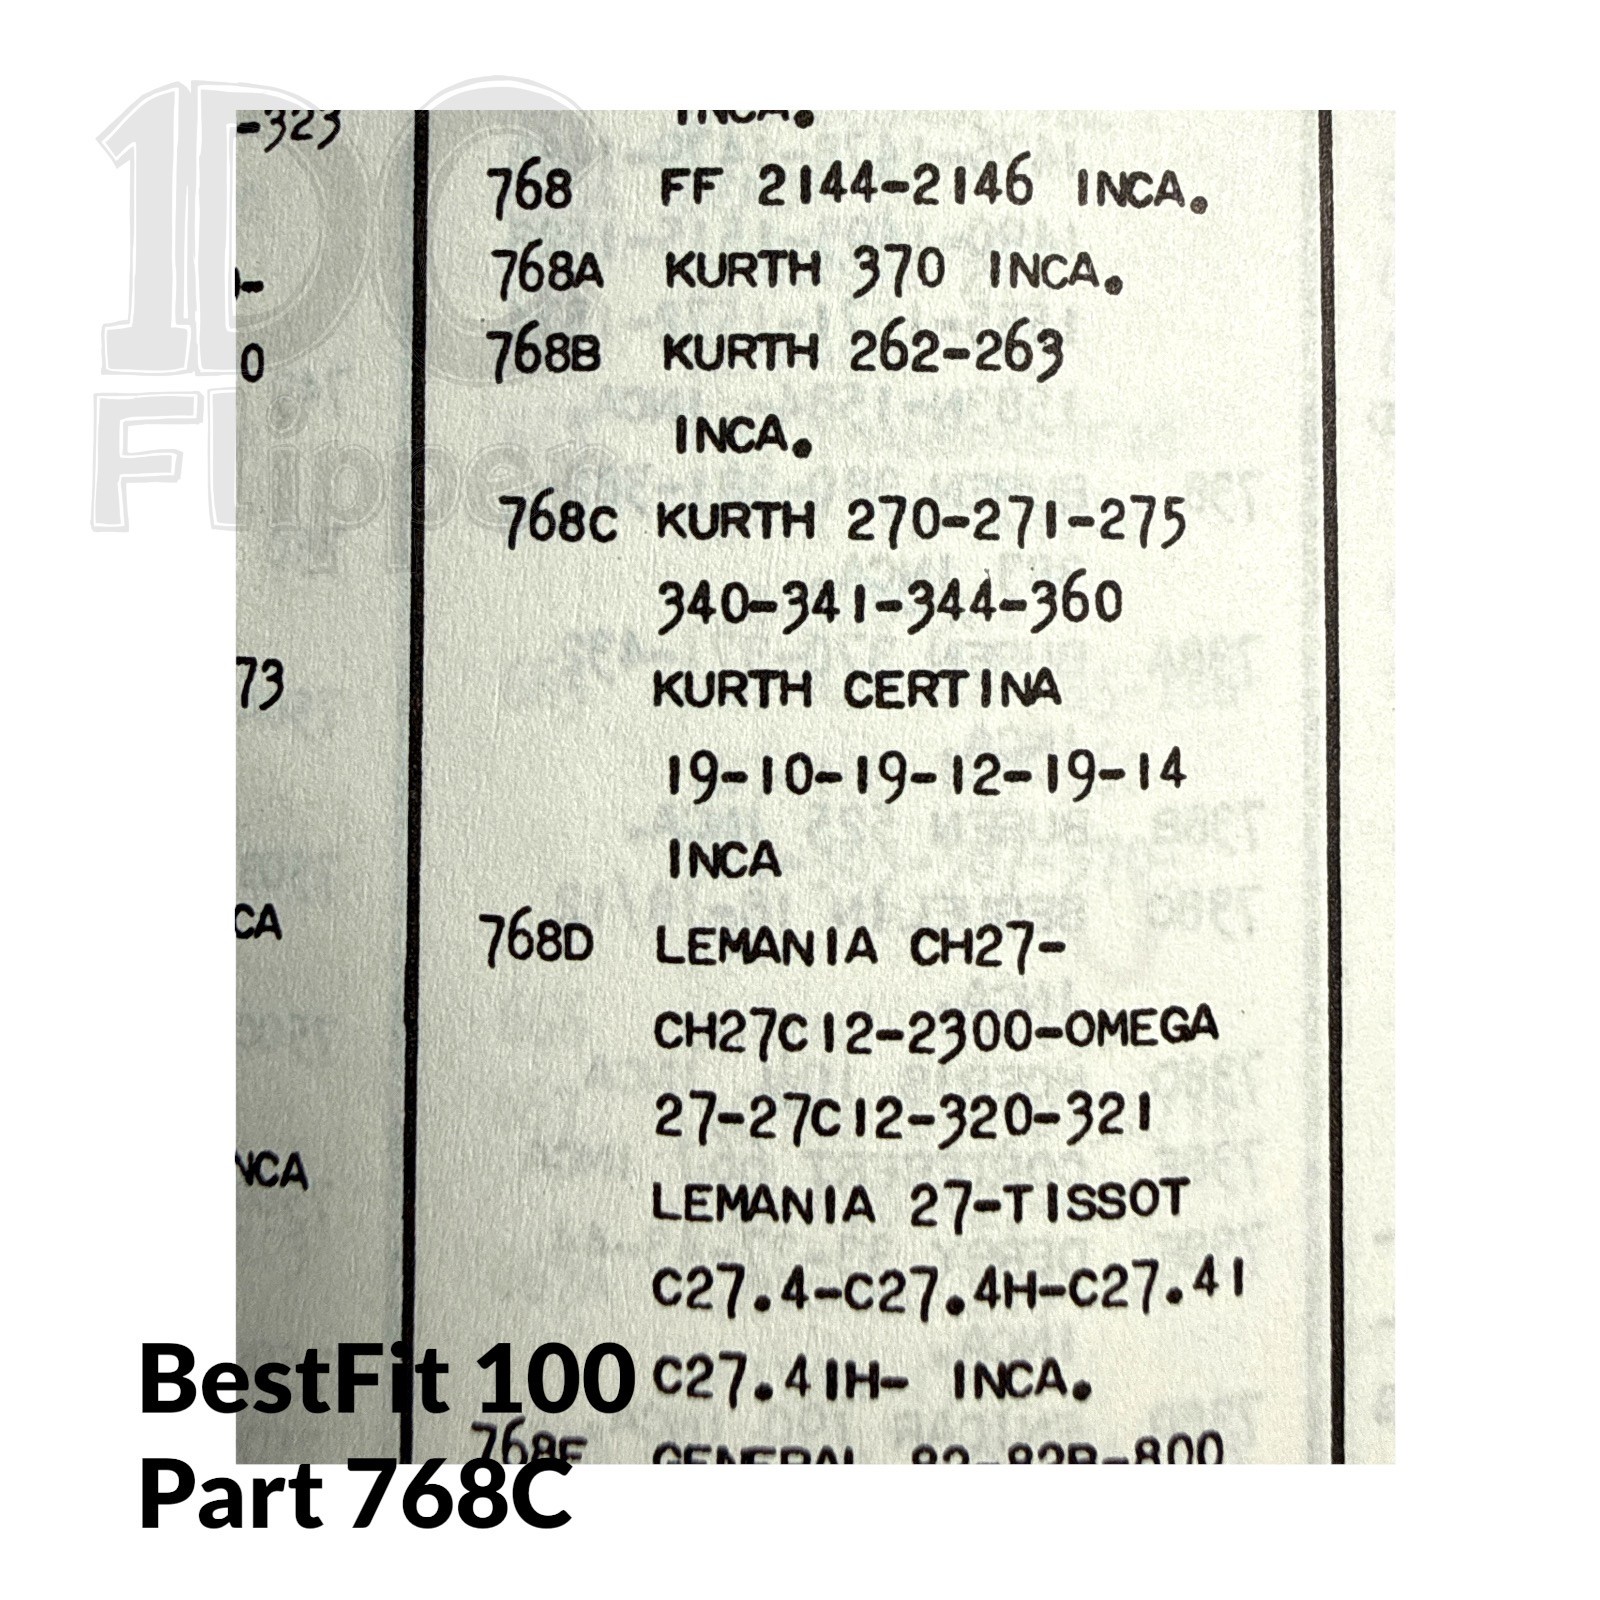 1DC
Flipper
-323
INCA.
768 FF 2144-2146 INCA.
768A KURTH 370 INCA.
768B KURTH 262-263
INCA.
768C KURTH 270-271-275
340-341-344-360
KURTH CERTINA
19-10-19-12-19-14
INCA
768D LEMANIA CH27-
CH27C12-2300-OMEGA
27-27C12-320-321
LEMANIA 27-TISSOT
C27.4-C27.4H-C27.41
C27.41H- INCA.
768E GENERAL 82-82B-800
0
73
CA
NCA
BestFit 100
Part 768C